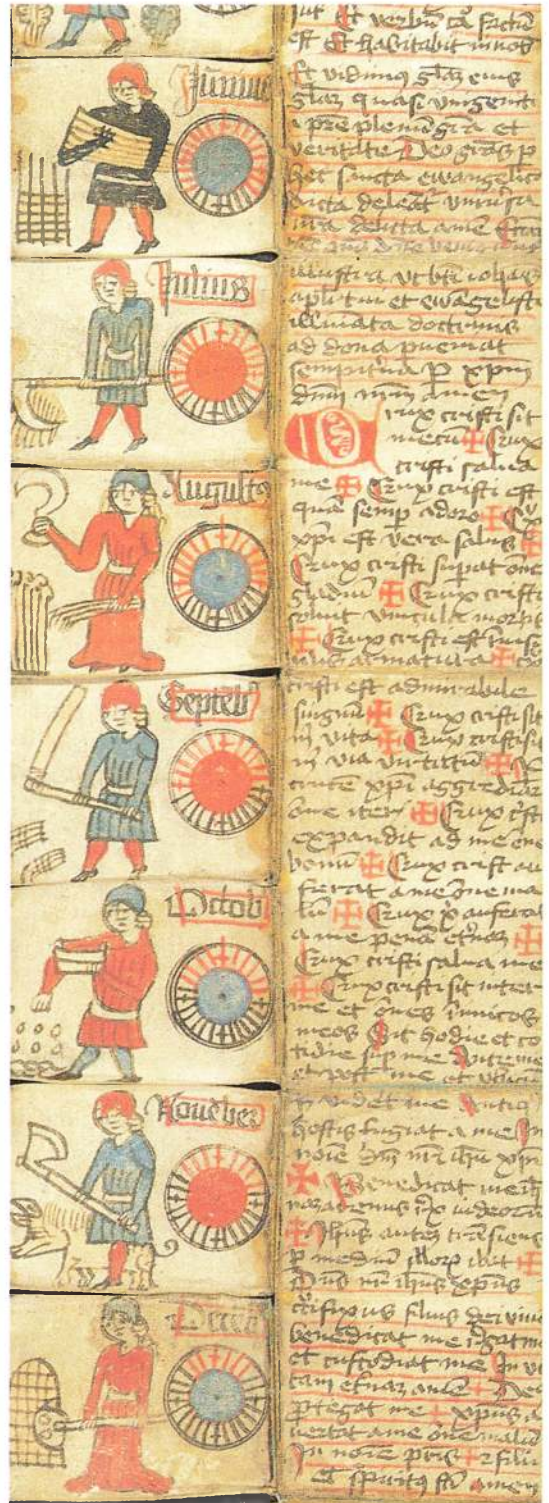 Junius
Julius
Augusts
Septeb
Octob
Noueber
Deceb
Et verbū caro factū
est Et habitabit in nob
Et vidimus glām eius
glām quasi vnigenti
a pre plenum grā et
veritate Deo grās p
hec sancta ewangelica
dicta deleāt
delicta amē
apli tui et ewāgelisti
doctrinis
ad dona pueniat
sempitna p xpm
dnm nrm amen
Crux cristi sit
mecū ✠ Crux
cristi salua
me ✠ Crux cristi est
quā semp adoro ✠ Cx
xpi est vera salus ✠
Crux cristi supat oне
gladiū ✠ Crux cristi
soluit vincula mortis
✠ Crux cristi est
armatura ✠ Cx
cristi est admirabile
signū ✠ Crux cristi sit
m vita ✠ Crux cristi sit
m via virtutū ✠
crucē xpi aggrediar
one iter ✠ Crux cristi
expandit ad me one
bonū ✠ Crux crist au
ferat a me one ma
lū ✠ Crux x auferat
a me penā etnaz ✠
Crux cristi salua me
✠ Crux cristi sit inter
me et ōnes inimicos
meos Sit hodie et co
tidie sup me Ante me
et post me et
me Antiq
hostis fugiat a me In
noie dni nri ihu xpi
✠ Benedicat me ih
nazarenus rex iudeorū
✠ Ihus autez transiens
p mediū illorz ibat ✠
Dns nr ihus xpus
crifixus filius dei viui
benedicat me
et custodiat me In vi
tam etnaz amē + Deus
ptegat me + xpus a
uertat a me one malū
In noie pris + z filii
et spiritus sti amen